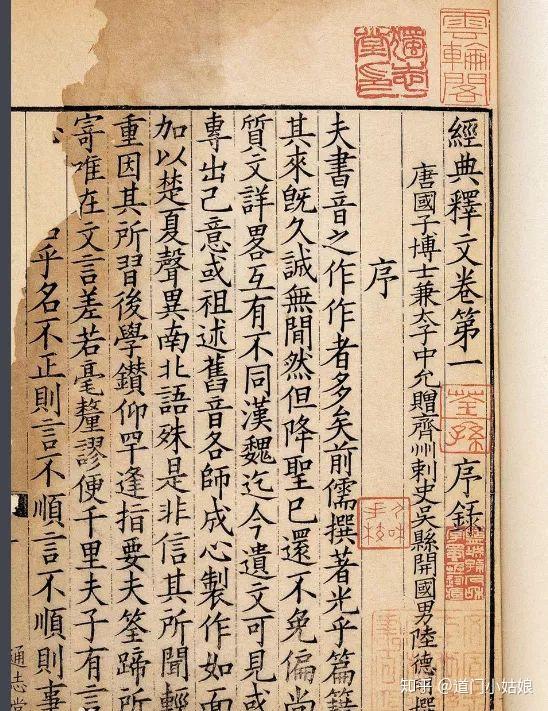 雲輪閣
經典釋文卷第一 序録
荃孫
獨志堂印
唐國子博士兼太子中允贈齊州刺史吳縣開國男陸德明撰
序
夫書音之作作者多矣前儒撰著光乎篇籍
其來旣久誠無閒然但降聖已還不免偏尚
質文詳畧互有不同漢魏迄今遺文可見或
專出己意或祖述舊音各師成心製作如面
加以楚夏聲異南北語殊是非信其所聞輕
重因其所習後學鑽仰罕逢指要夫筌蹄所
寄唯在文言差若毫釐謬便千里夫子有言
乎名不正則言不順言不順則事
通志堂
知乎 @道门小姑娘